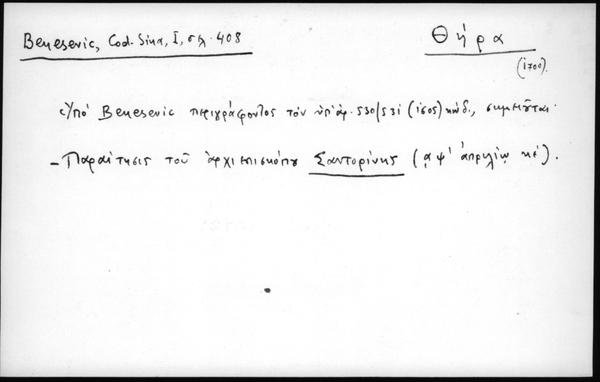 Benesevic, Cod. Sina, I, σελ. 408
Θήρα
(1700).
Ὑπό Benesevic περιγράφοντος τόν ὑπ' ἀρ. 530/531 (1505) κώδ., σημειοῦται.
– Παραίτησις τοῦ ἀρχιεπισκόπου Σαντορίνης (αψ' ἀπριλίῳ κε').